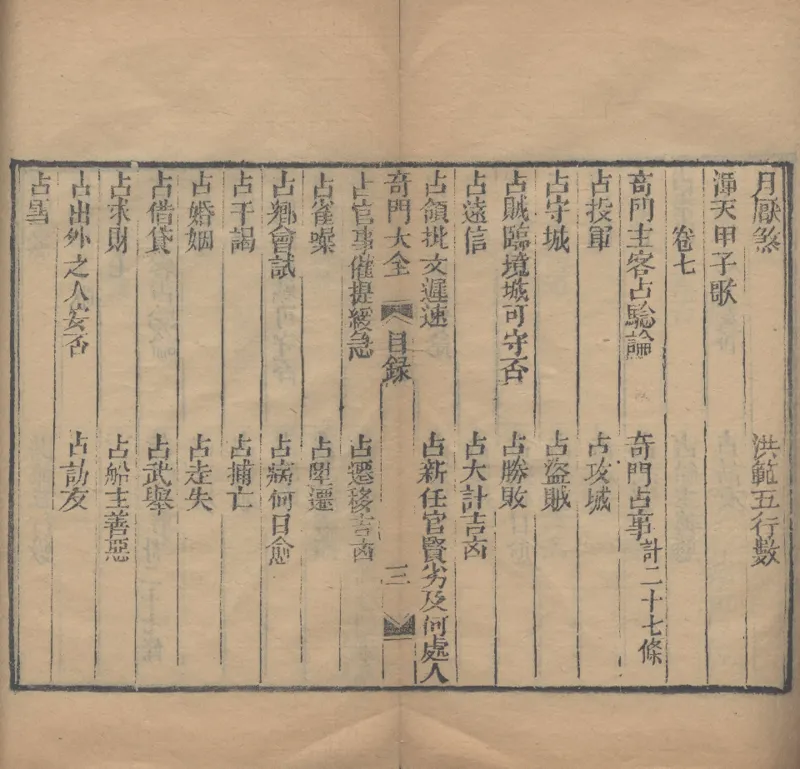 月厭煞　洪範五行數
渾天甲子歌
卷七
奇門主客占驗論　奇門占事計二十七條
占投軍　占攻城
占守城　占盜賊
占賊臨境城可守否　占勝敗
占遠信　占大計吉凶
占領批文遲速　占新任官賢劣及何處人
奇門大全　目錄　三
占官事催提緩急　占遷移吉凶
占雀噪　占陞遷
占鄉會試　占病何日愈
占干謁　占捕亡
占婚姻　占走失
占借貸　占武舉
占求財　占船主善惡
占出外之人安否　占訪友
占雪